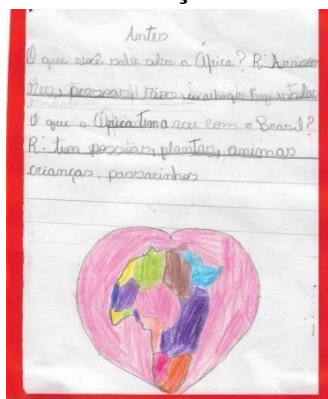 Antes
O que você sabe sobre a África? R:
pessoas, rios,
O que a África tem a ver com o Brasil?
R: tem pessoas, plantas, animas
crianças, passarinhos